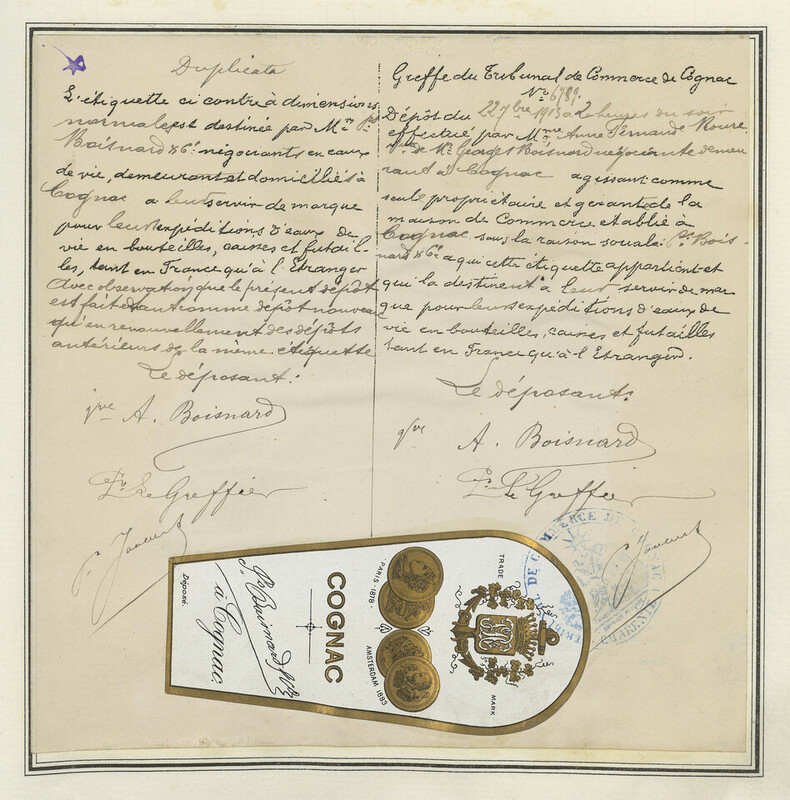 Duplicata
L'étiquette ci contre à dimensions
normales est destinée par Mrs
Boisnard & Cie négociants en eaux
de vie, demeurant et domiciliés à
Cognac a leur servir de marque
pour leurs expéditions d'eaux de
vie en bouteilles, caisses et futail-
les, tant en France qu'à l'Etranger
Avec observation que le présent dépôt
est fait tant comme dépôt nouveau
qu'en renouvellement des dépôts
antérieurs de la même étiquette
Le déposant:
A. Boisnard
Le Greffier
Greffe du Tribunal de Commerce de Cognac
No 6789.
Dépôt du 22 7bre 1913 a 2 heures du soir
effectué par Mme Anne Fernande Roure
Vve de Mr Georges Boisnard négociante demeu
rant à Cognac agissant comme
seule propriétaire et gérante de la
maison de Commerce etablie à
Cognac sous la raison sociale: Bois-
nard & Cie a qui cette étiquette appartient et
qui la destinent a leur servir de mar
que pour leurs expéditions d'eaux de
vie en bouteilles, caisses et futailles
tant en France qu'à l'Etranger.
Le déposant:
A. Boisnard
Le Greffier
TRADE MARK
PARIS-1878-
AMSTERDAM 1883
COGNAC
Boisnard & Cie
à Cognac.
Déposé.